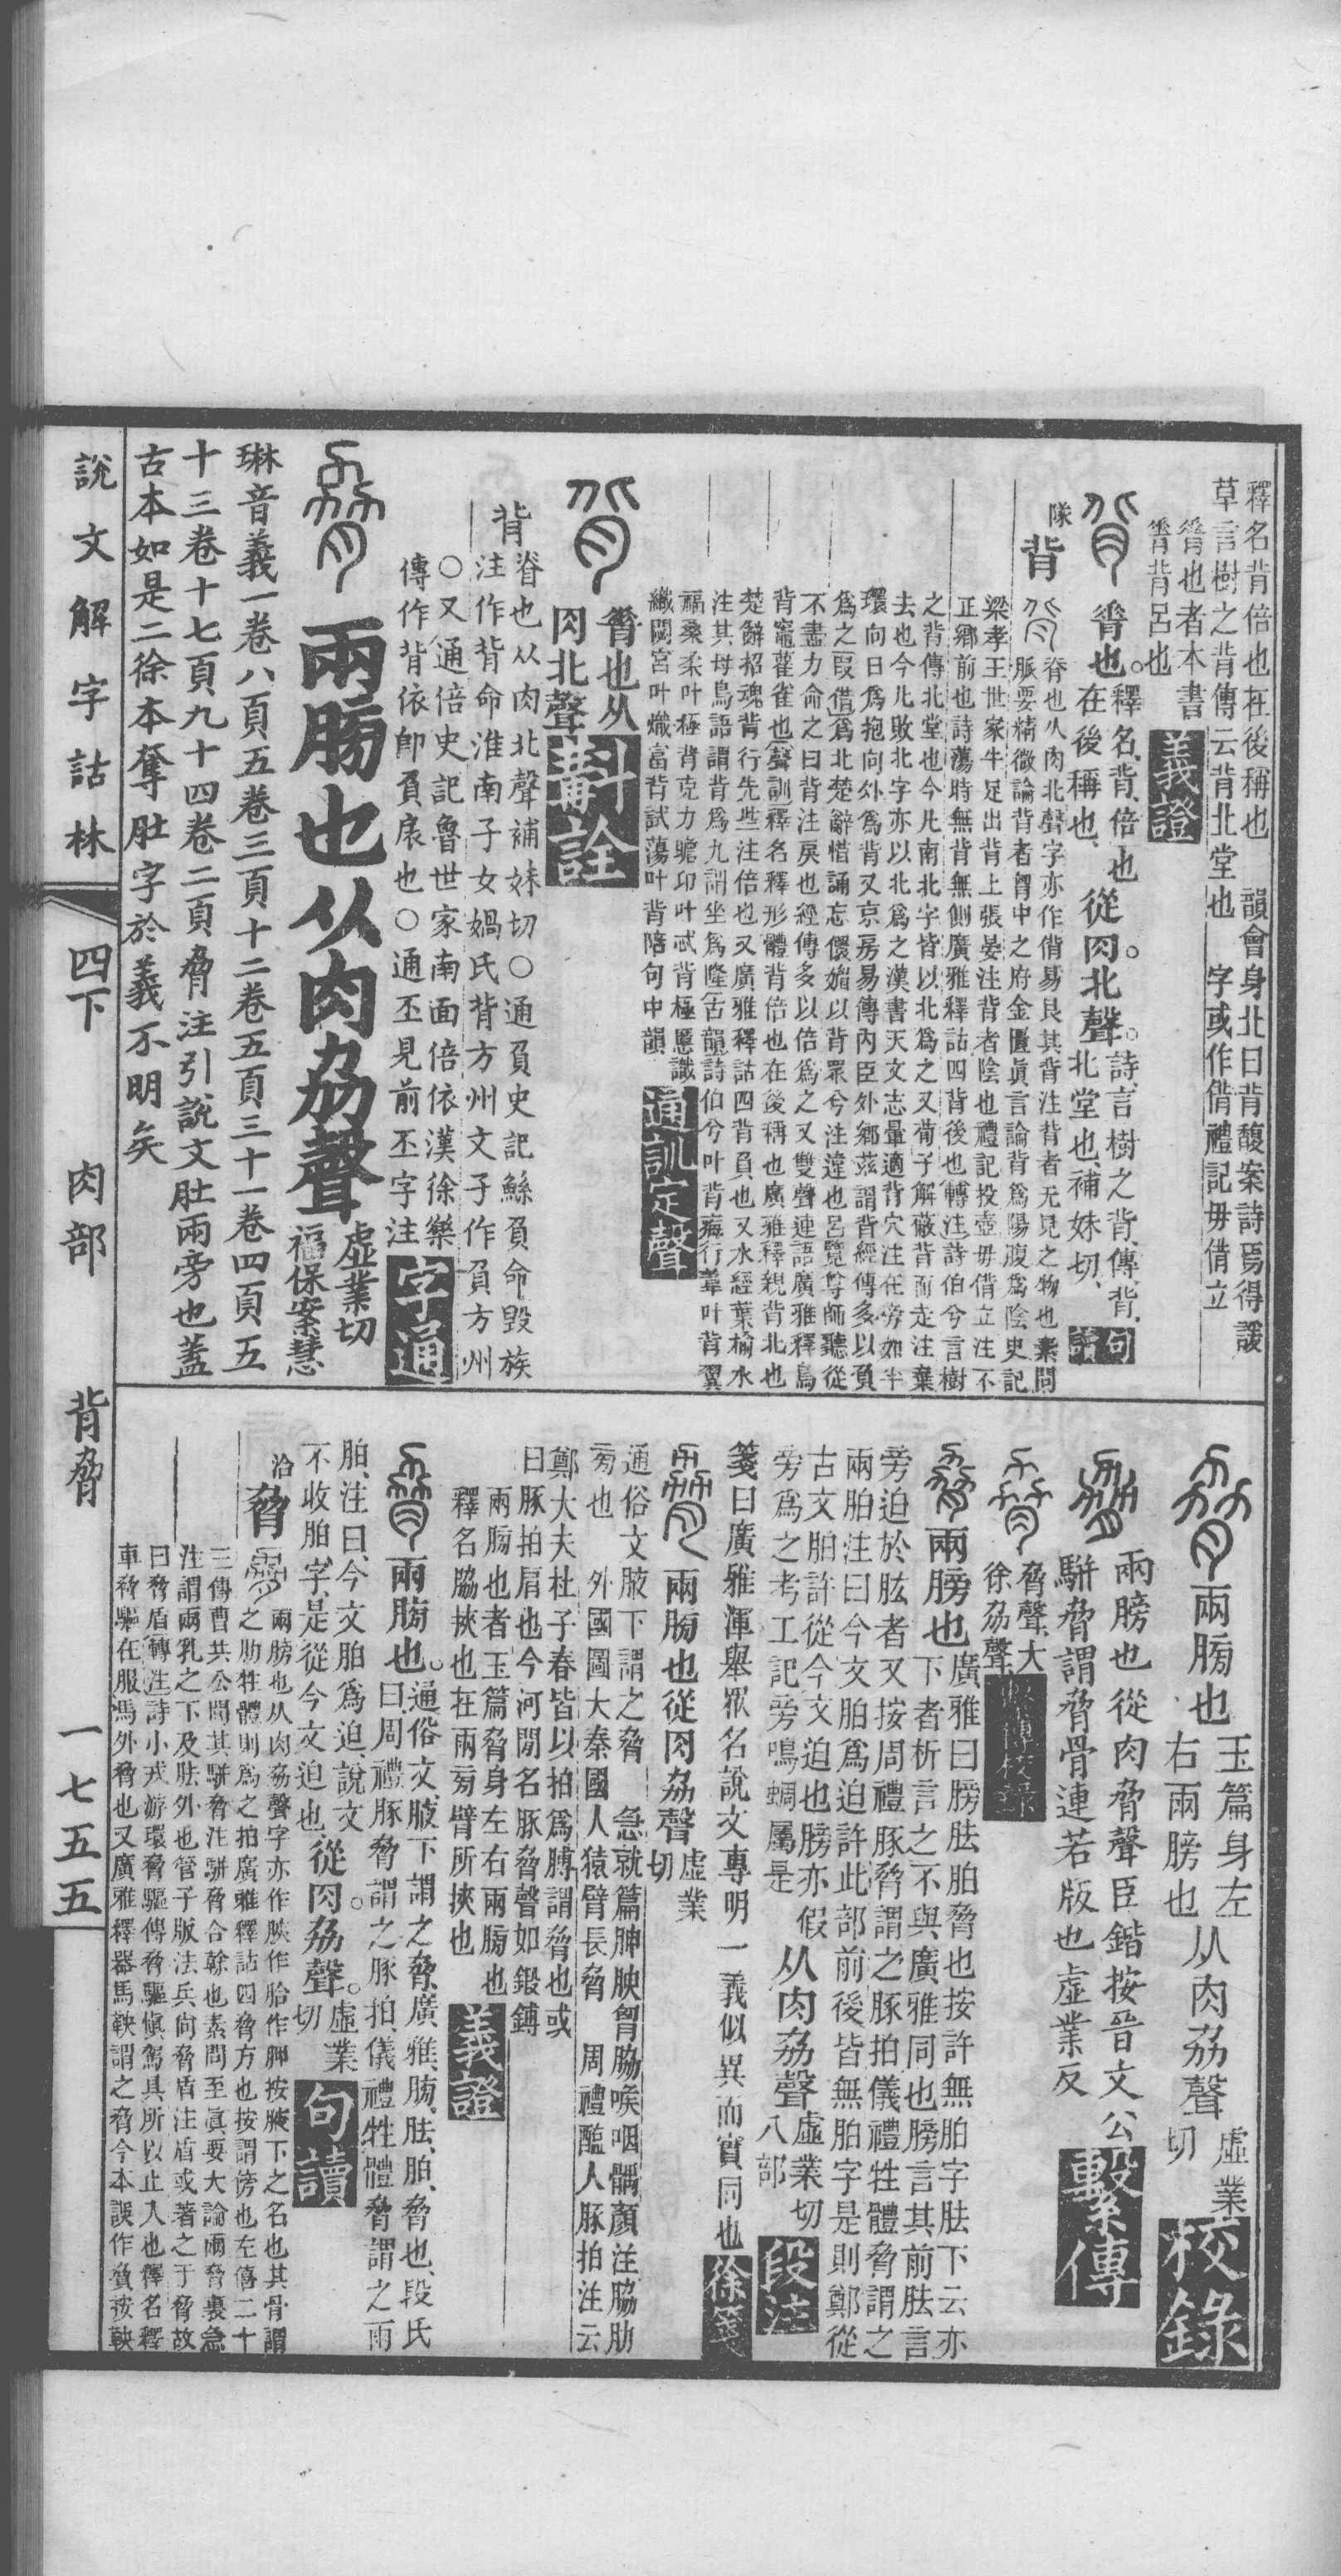 釋名背倍也在後稱也　韻會身北曰背馥案詩焉得諼
草言樹之背傳云背北堂也　字或作偝禮記毋偝立
脊也者本書
脊背呂也
義證
脊也。釋名、背、倍也
在後稱也、從肉北聲。詩、言樹之背、傳、背、
北堂也、補妹切、
句讀
隊
背
脊也从肉北聲字亦作偝易艮其背注背者无見之物也素問
脈要精微論背者胷中之府金匱眞言論背爲陽腹爲陰史記
梁孝王世家牛足出背上張晏注背者陰也禮記投壺毋偝立注不
正鄉前也詩蕩時無背無側廣雅釋詁四背後也轉注詩伯兮言樹
之背傳北堂也今凡南北字皆以北爲之又荀子解蔽背而走注棄
去也今凡敗北字亦以北爲之漢書天文志暈適背穴注在旁如半
環向日爲抱向外爲背又京房易傳內臣外鄉茲謂背經傳多以負
爲之叚借爲北楚辭惜誦忘儇媚以背眾兮注違也呂覽尊師聽從
不盡力命之曰背注戾也經傳多以倍爲之又雙聲連語廣雅釋鳥
背竈雚雀也聲訓釋名釋形體背倍也在後稱也廣雅釋親背北也
楚辭招魂背行先些注倍也又廣雅釋詁四背負也又水經葉榆水
注其母鳥語謂背爲九謂坐爲隆古韻詩伯兮叶背痗行葦叶背翼
福桑柔叶極背克力瞻卬叶忒背極慝識
織閟宮叶熾富背試蕩叶背陪句中韻
通訓定聲
脊也从
肉北聲
斠詮
背
脊也从肉北聲補妹切○通負史記鯀負命毀族
注作背命淮南子女媧氏背方州文子作負方州
○又通倍史記魯世家南面倍依漢徐樂
傳作背依卽負扆也○通丕見前丕字注
字通
兩膀也从肉劦聲
虛業切
福保案慧
琳音義一卷八頁五卷三頁十二卷五頁三十一卷四頁五
十三卷十七頁九十四卷二頁脅注引說文肚兩旁也蓋
古本如是二徐本奪肚字於義不明矣
兩膀也
玉篇身左
右兩膀也
从肉劦聲
虛業
切
校錄
兩膀也從肉脅聲臣鍇按晉文公
駢脅謂脅骨連若版也虛業反
繫傳
脅聲大
徐劦聲
繫傳校錄
兩膀也
廣雅曰膀胠胉脅也按許無胉字胠下云亦
下者析言之不與廣雅同也膀言其前胠言
旁迫於肱者又按周禮豚脅謂之豚拍儀禮牲體脅謂之
兩胉注曰今文胉爲迫許此部前後皆無胉字是則鄭從
古文胉許從今文迫也膀亦假
旁爲之考工記旁鳴蜩屬是
从肉劦聲
虛業切
八部
段注
箋曰廣雅渾舉眾名說文專明一義似異而實同也
徐箋
兩膀也從肉劦聲
虛業
切
通俗文腋下謂之脅　急就篇胂腴胷脇喉咽髃顏注脇肋
旁也　外國圖大秦國人猿臂長脅　周禮醢人豚拍注云
鄭大夫杜子春皆以拍爲膊謂脅也或
曰豚拍肩也今河間名豚脅聲如鍛鎛
兩膀也者玉篇脅身左右兩膀也
釋名脇挾也在兩旁臂所挾也
義證
兩膀也。
通俗文、腋下謂之脅、廣雅、膀、胠、胉、脅也、段氏
曰、周禮豚脅謂之豚拍、儀禮牲體脅謂之兩
胉、注曰、今文胉爲迫、說文
不收胉字、是從今文迫也
從肉劦聲。
虛業
切
句讀
洽
脅
兩膀也从肉劦聲字亦作脥作胎作胛按腋下之名也其骨謂
之肋牲體則爲之拍廣雅釋詁四脅方也按謂傍也左僖二十
三傳曹共公聞其駢脅注駢脅合榦也素問至眞要大論兩脅裏急
注謂兩乳之下及胠外也管子版法兵尙脅盾注盾或著之于脅故
曰脅盾轉注詩小戎游環脅驅傳脅驅愼駕具所以止入也釋名釋
車脅驅在服馬外脅也又廣雅釋器馬鞅謂之脅今本誤作䝱按鞅
說文解字詁林
四下
肉部
背脅
一七五五